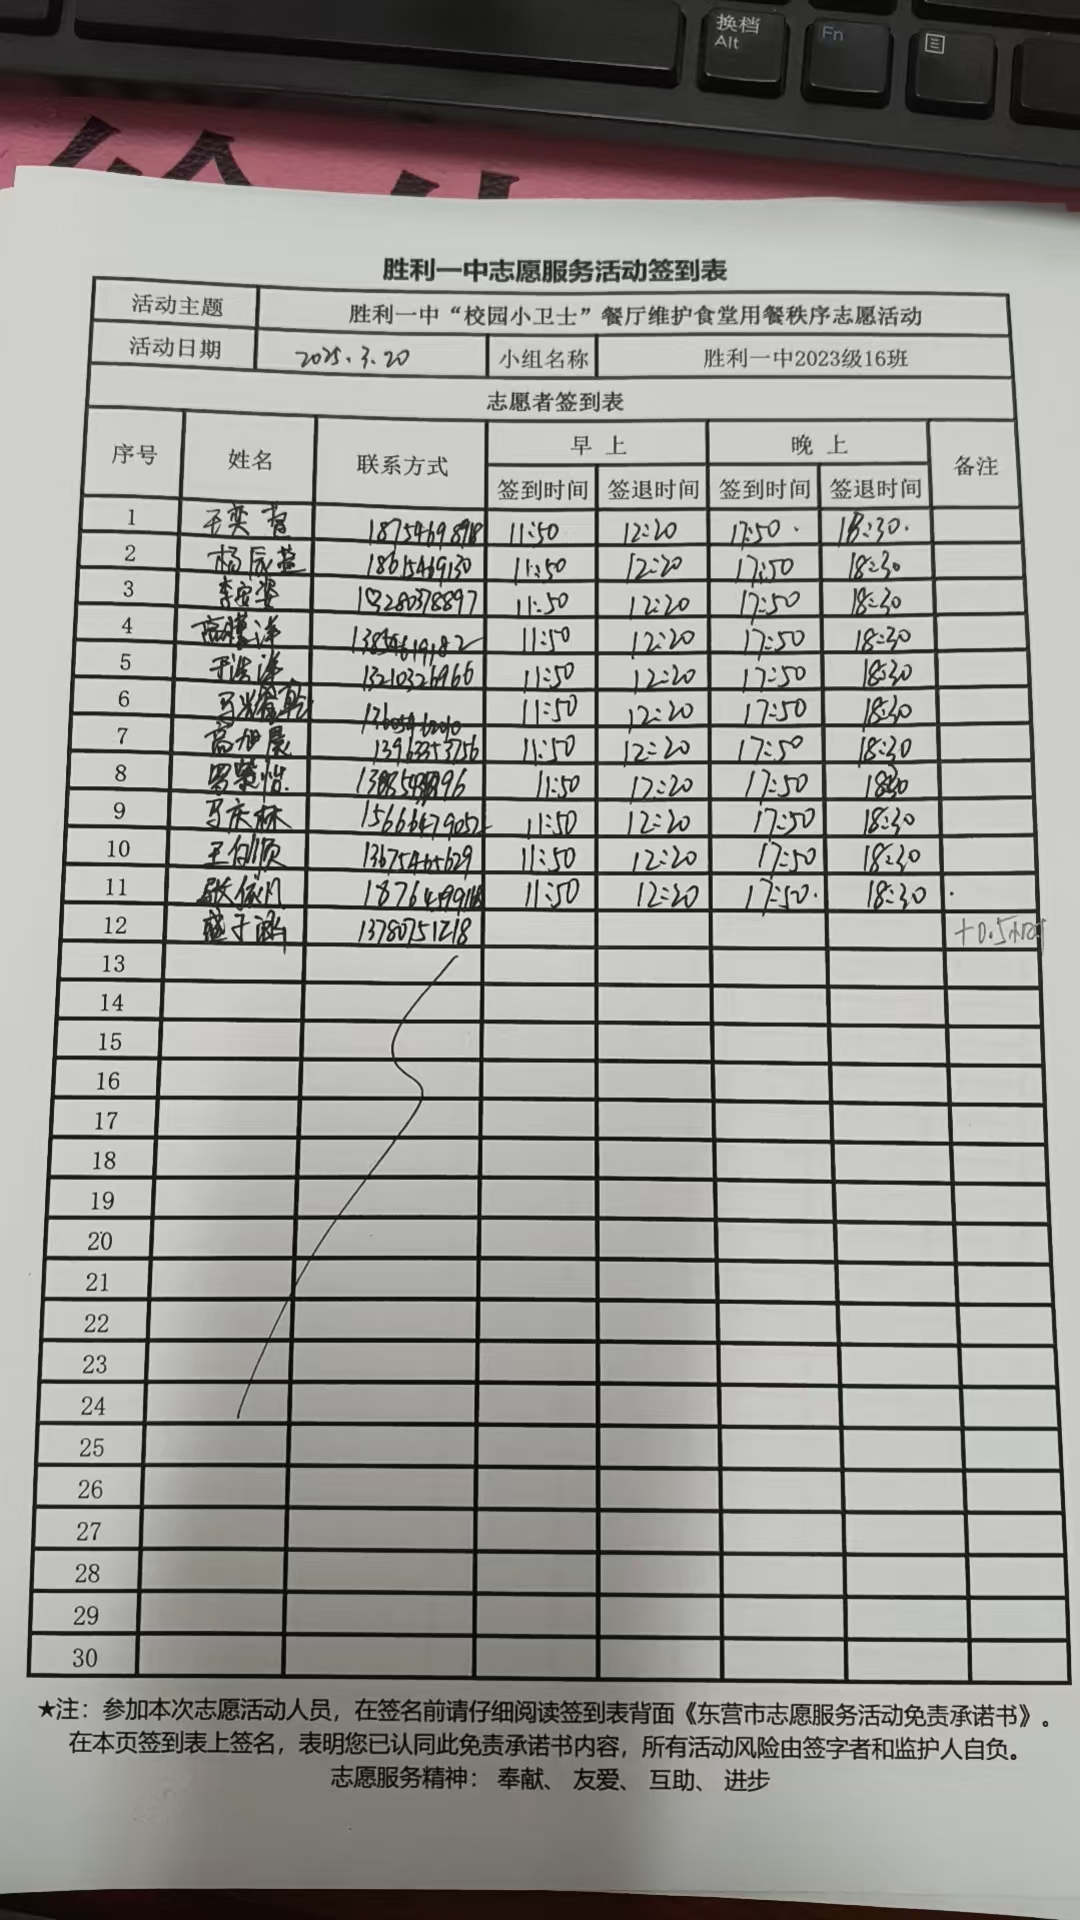 换档
Alt
Fn
胜利一中志愿服务活动签到表
活动主题 胜利一中“校园小卫士”餐厅维护食堂用餐秩序志愿活动
活动日期 2025.3.20 小组名称 胜利一中2023级16班
志愿者签到表
序号 姓名 联系方式 早上 晚上 备注
签到时间 签退时间 签到时间 签退时间
1 11:50 12:20 17:50 18:30
2 18615469130 11:50 12:20 17:50 18:30
3 11:50 12:20 17:50 18:30
4 13854619182 11:50 12:20 17:50 18:30
5 13210326966 11:50 12:20 17:50 18:30
6 11:50 12:20 17:50 18:30
7 高旭晨 13963353756 11:50 12:20 17:50 18:30
8 11:50 12:20 17:50 1830
9 马庆林 15666479052 11:50 12:20 17:50 18:30
10 13675465629 11:50 12:20 17:50 18:30
11 张依凡 11:50 12:20 17:50 18:30
12 13780751218 +0.5小时
13
14
15
16
17
18
19
20
21
22
23
24
25
26
27
28
29
30
★注：参加本次志愿活动人员，在签名前请仔细阅读签到表背面《东营市志愿服务活动免责承诺书》。
在本页签到表上签名，表明您已认同此免责承诺书内容，所有活动风险由签字者和监护人自负。
志愿服务精神： 奉献、 友爱、 互助、 进步